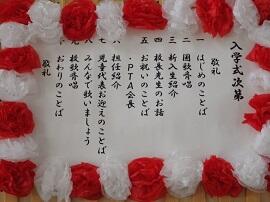 入学式次第
敬礼
一 はじめのことば
二 国歌斉唱
三 新入生紹介
四 校長先生のお話
五 お祝いのことば
・PTA会長
六 担任紹介
七 児童代表お迎えのことば
八 みんなで歌いましょう
九 校歌斉唱
十 おわりのことば
敬礼